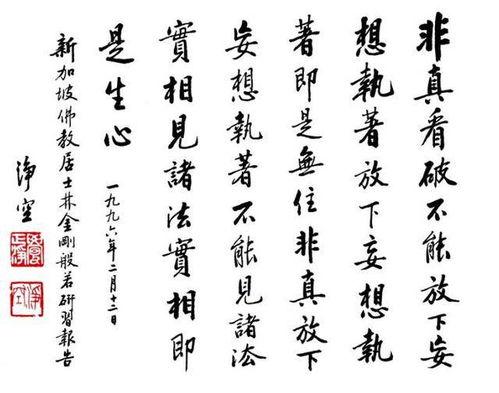 非真看破不能放下妄
想執著放下妄想執
著即是無住非真放下
妄想執著不能見諸法
實相見諸法實相即
是生心
一九九六年二月十二日
新加坡佛教居士林金剛般若研習報告
淨空